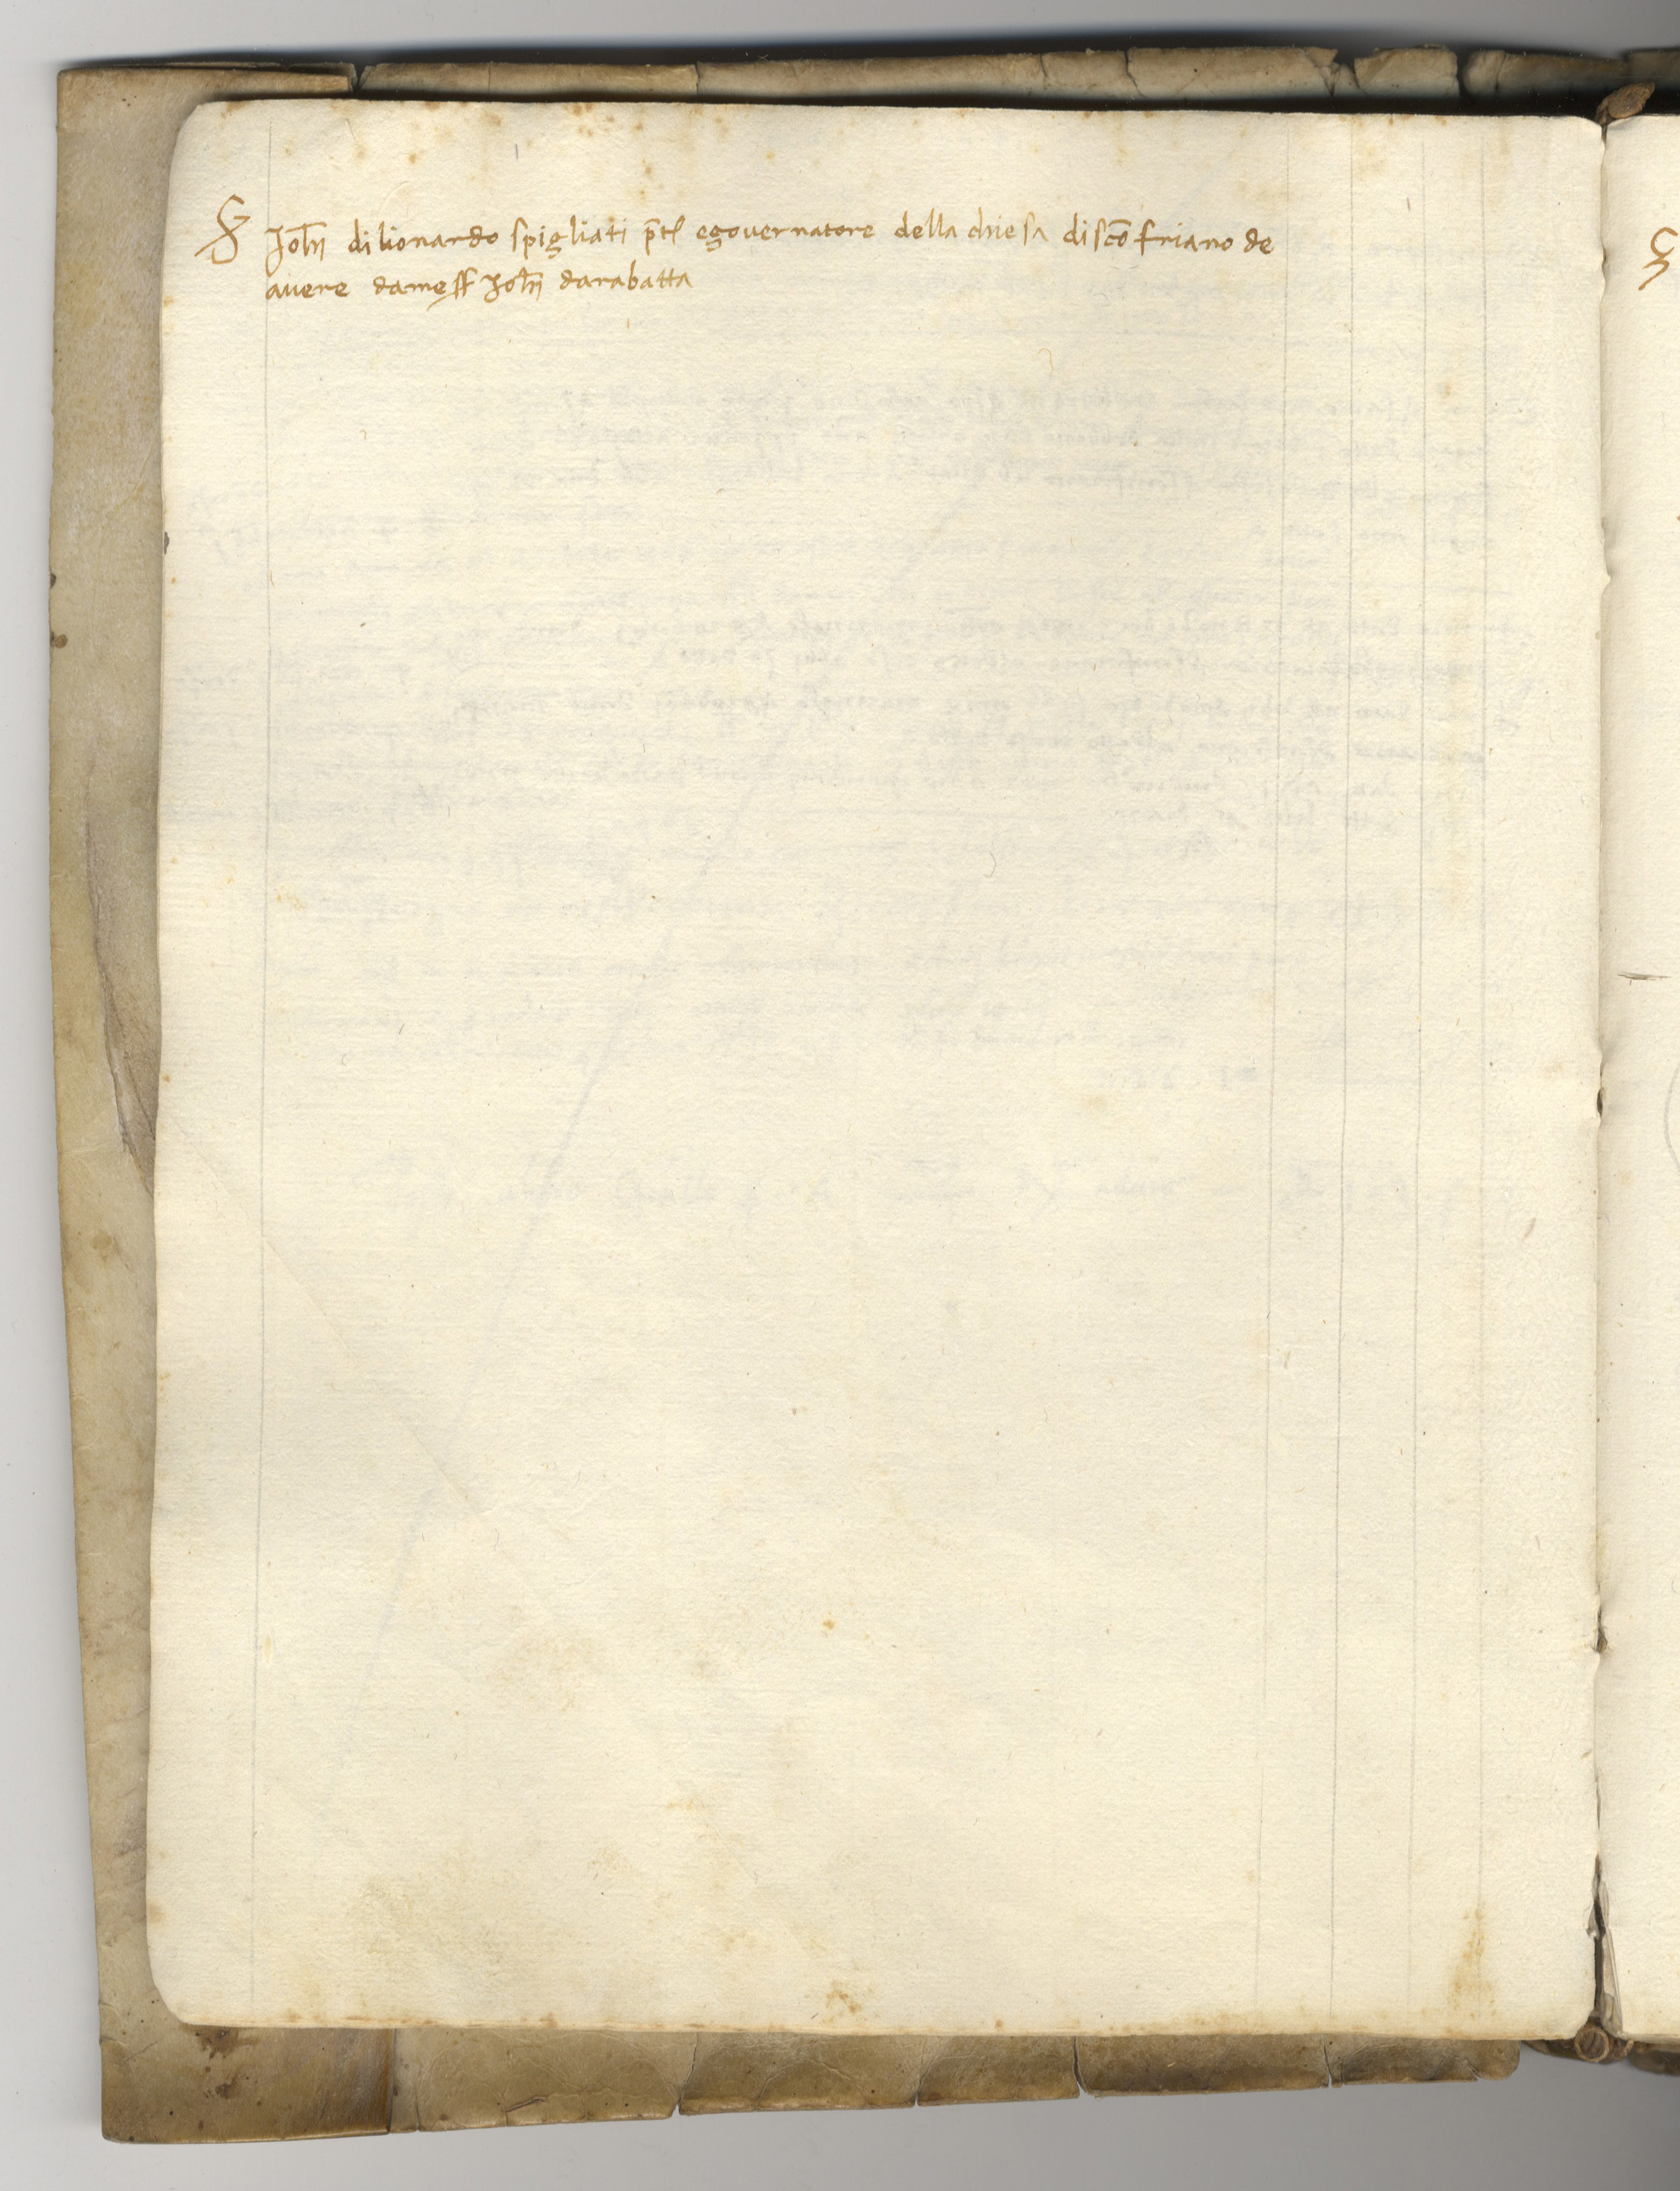 S Joħi di lionardo spigliati p̄tſ e governatore della chiesa di scō friano de
avere da meſſ Joħi da rabatta